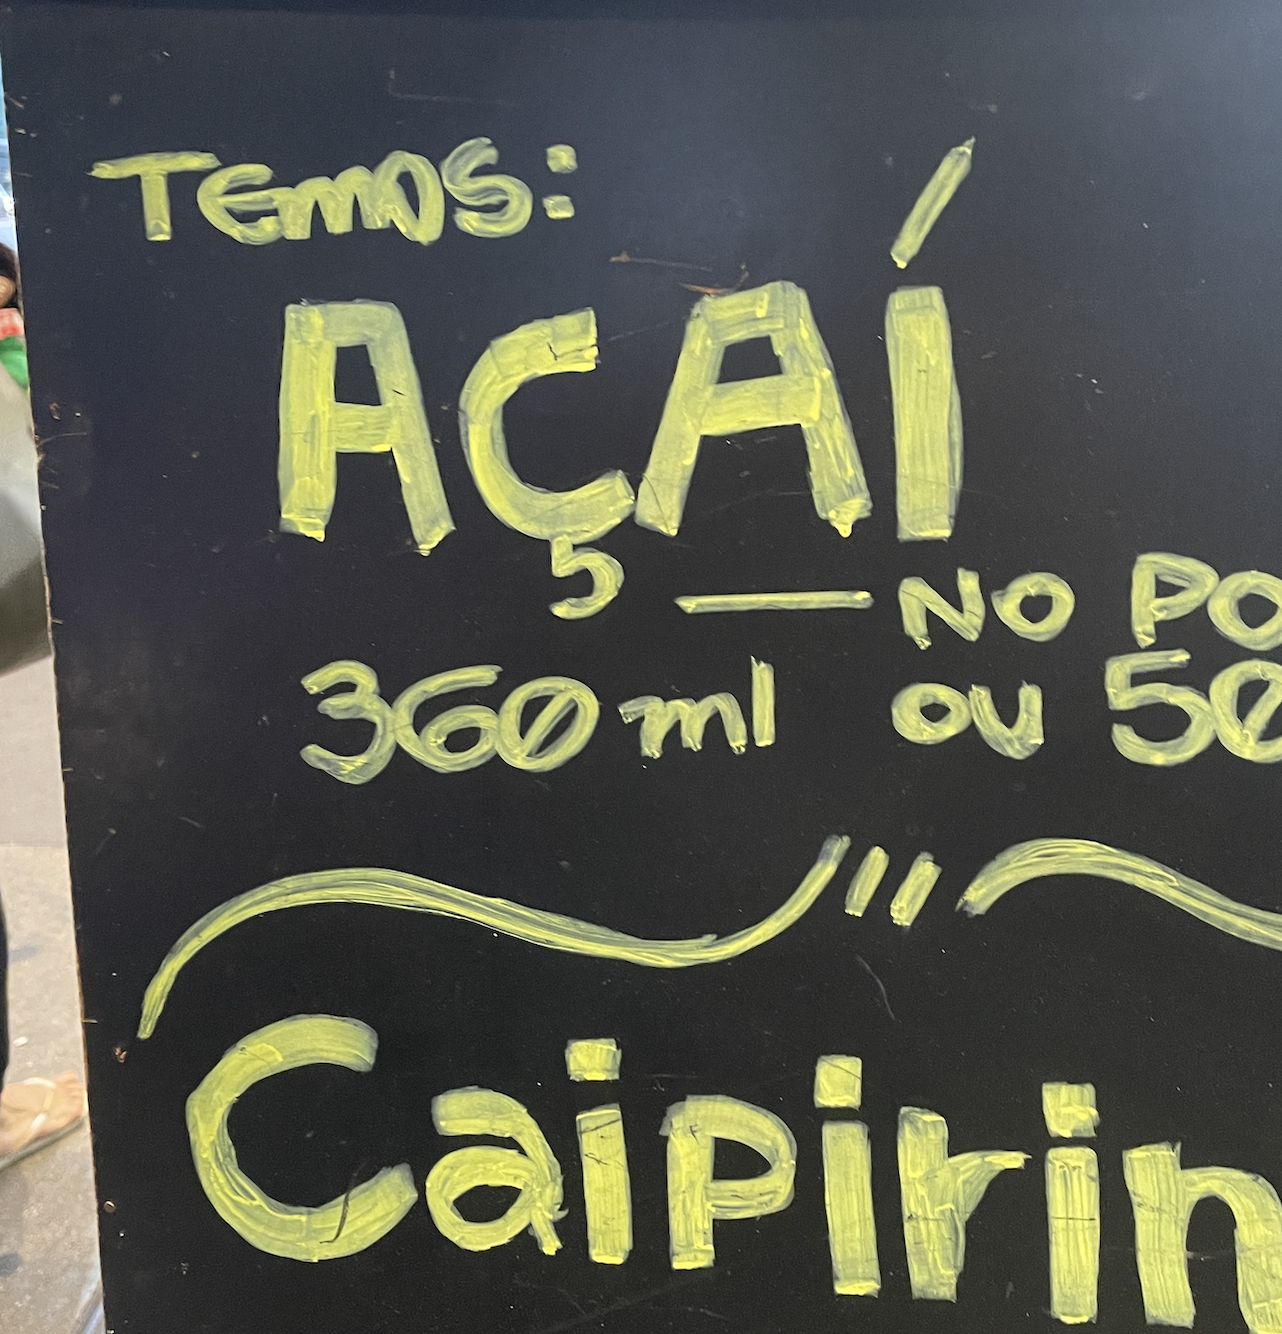 Temos:
AÇAÍ
— NO PO
360 ml ou 50
Caipirin